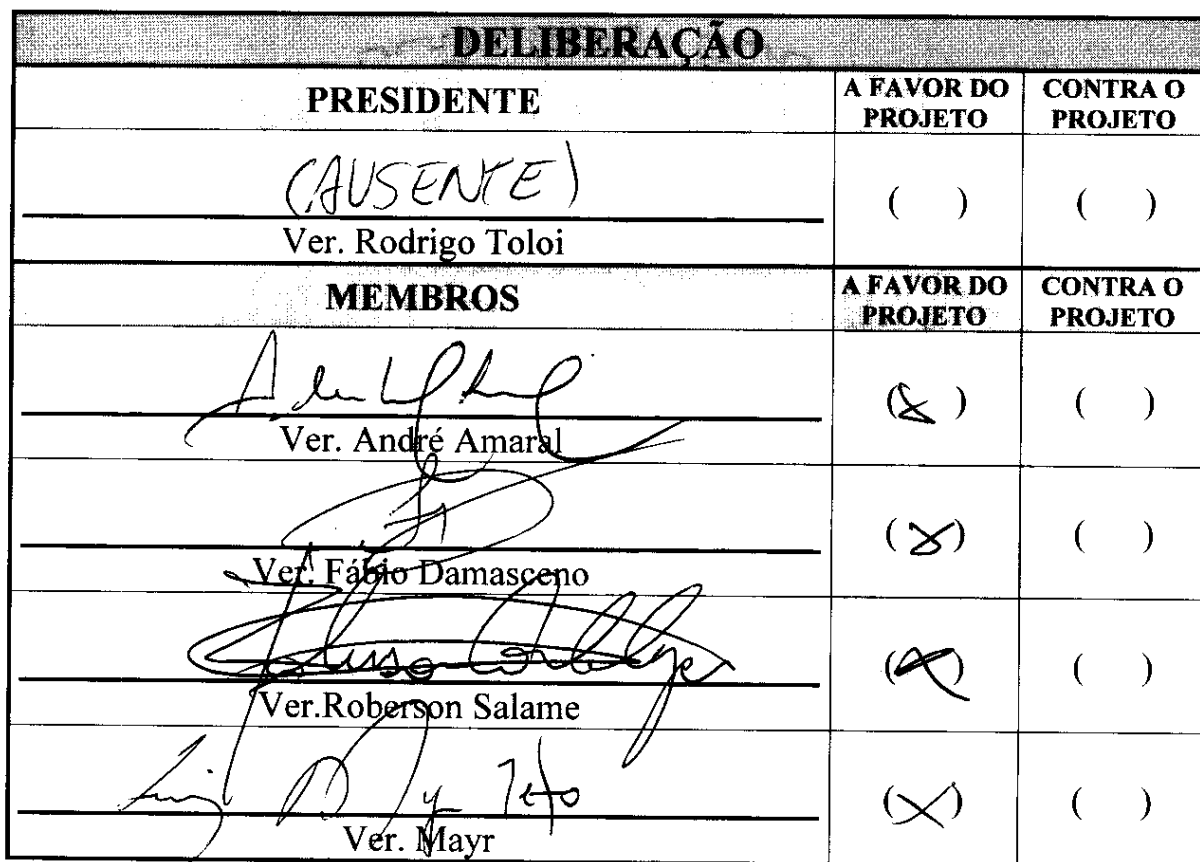 DELIBERAÇÃO
PRESIDENTE A FAVOR DO PROJETO CONTRA O PROJETO
(AUSENTE)
Ver. Rodrigo Toloi ( ) ( )
MEMBROS A FAVOR DO PROJETO CONTRA O PROJETO
Ver. André Amaral (X) ( )
Ver. Fábio Damasceno (X) ( )
Ver.Roberson Salame (X) ( )
Ver. Mayr (X) ( )